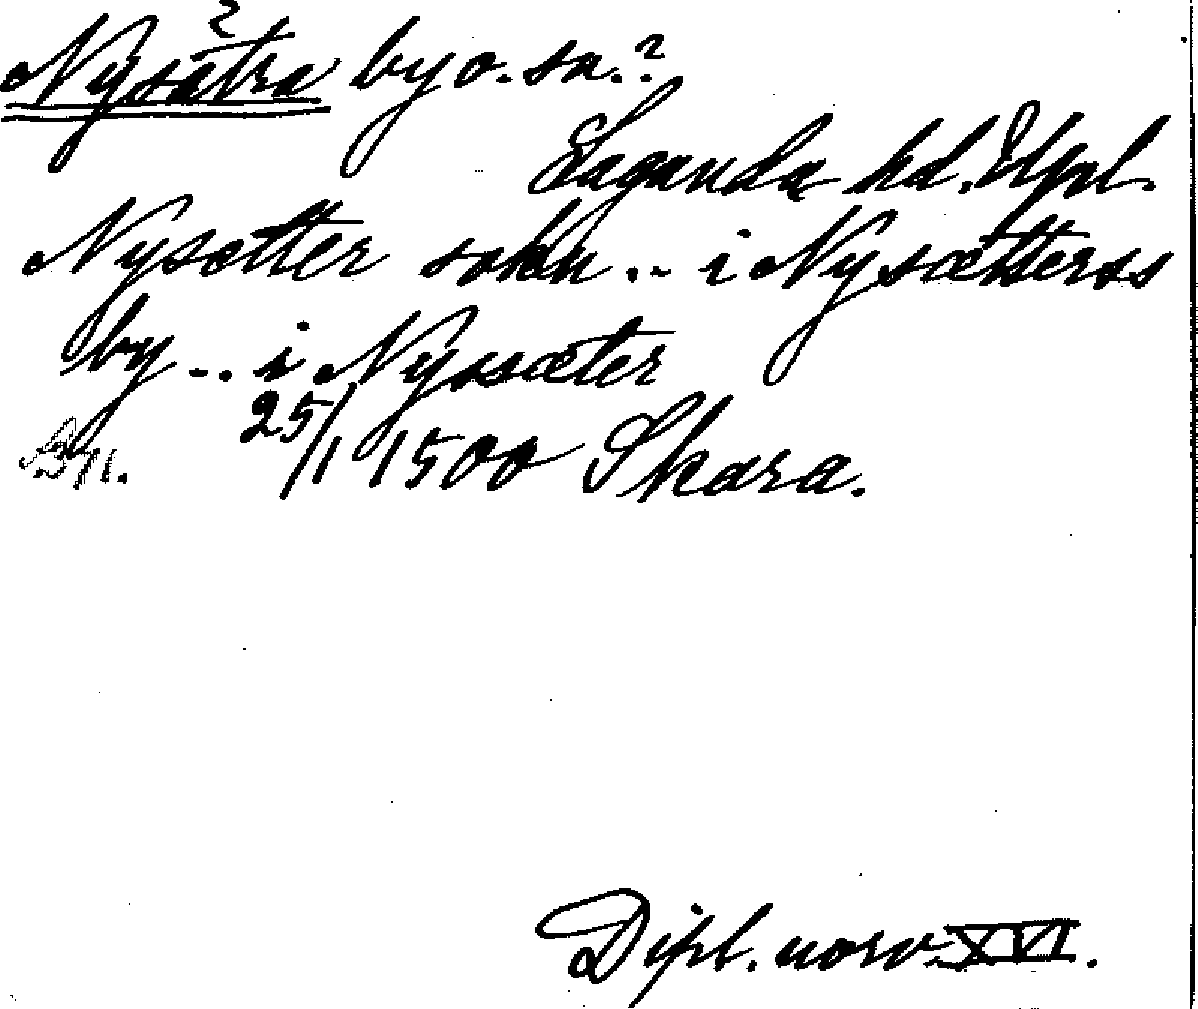 ?
Nysätra by o. sn.?
Laganda hd. Uppl.
Nysætter sokn .. i Nysætterss
by .. i Nyssæter
25/1 1500 Skara.
Dipl. norv. XVI.